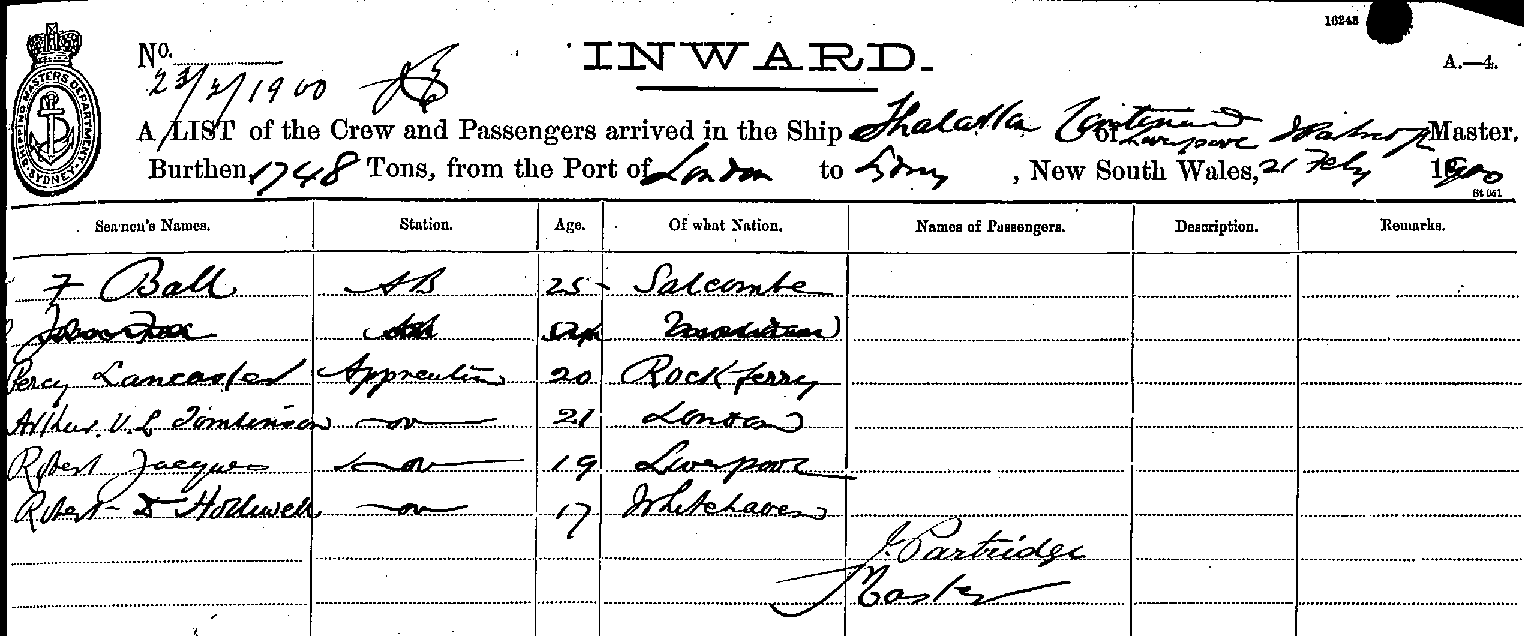 16243
No.
INWARD.
A.—4.
23/2/1900
SHIPPING MASTERS DEPARTMENT SYDNEY
A LIST of the Crew and Passengers arrived in the Ship Thalatta Continued of Liverpool Master.
Burthen 1748 Tons, from the Port of London to Sydney , New South Wales, 21 Feby 1900
Seamen's Names. Station. Age. Of what Nation. Names of Passengers. Description. Remarks.
F Ball AB 25 Salcombe
Percy Lancaster Apprentice 20 Rock ferry
Arthur. V. L Tomlinson —do— 21 London
Robert Jacques —do— 19 Liverpool
Robert D Holliwell —do— 17 Whitehaven
J. Partridge
Master